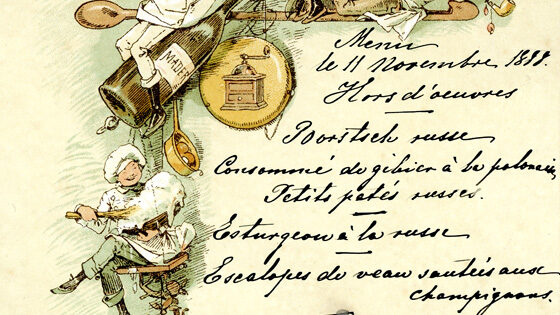 MADÈR
Menu
le 11 Novembre 1888.
Hors d'oeuvres
Borstsch russe
Consommé de gibier à la polonaise,
Petits patés russes.
Esturgeon à la russe
Escalopes de veau sautées aux
champignons.